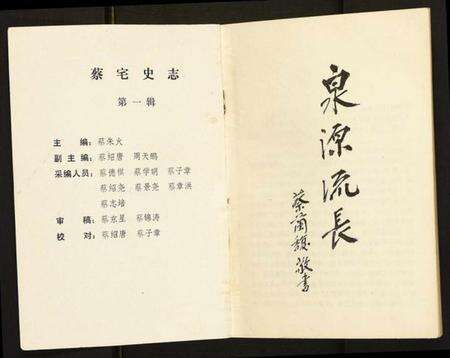 蔡宅史志
第一辑
主编：蔡朱火
副主编：蔡绍唐 周天鹏
采编人员：蔡德祺 蔡学明 蔡子章
蔡绍尧 蔡景尧 蔡章洪
蔡志培
审稿：蔡京星 蔡锦涛
校对：蔡绍唐 蔡子章
泉源流長
蔡蘭馥敬書